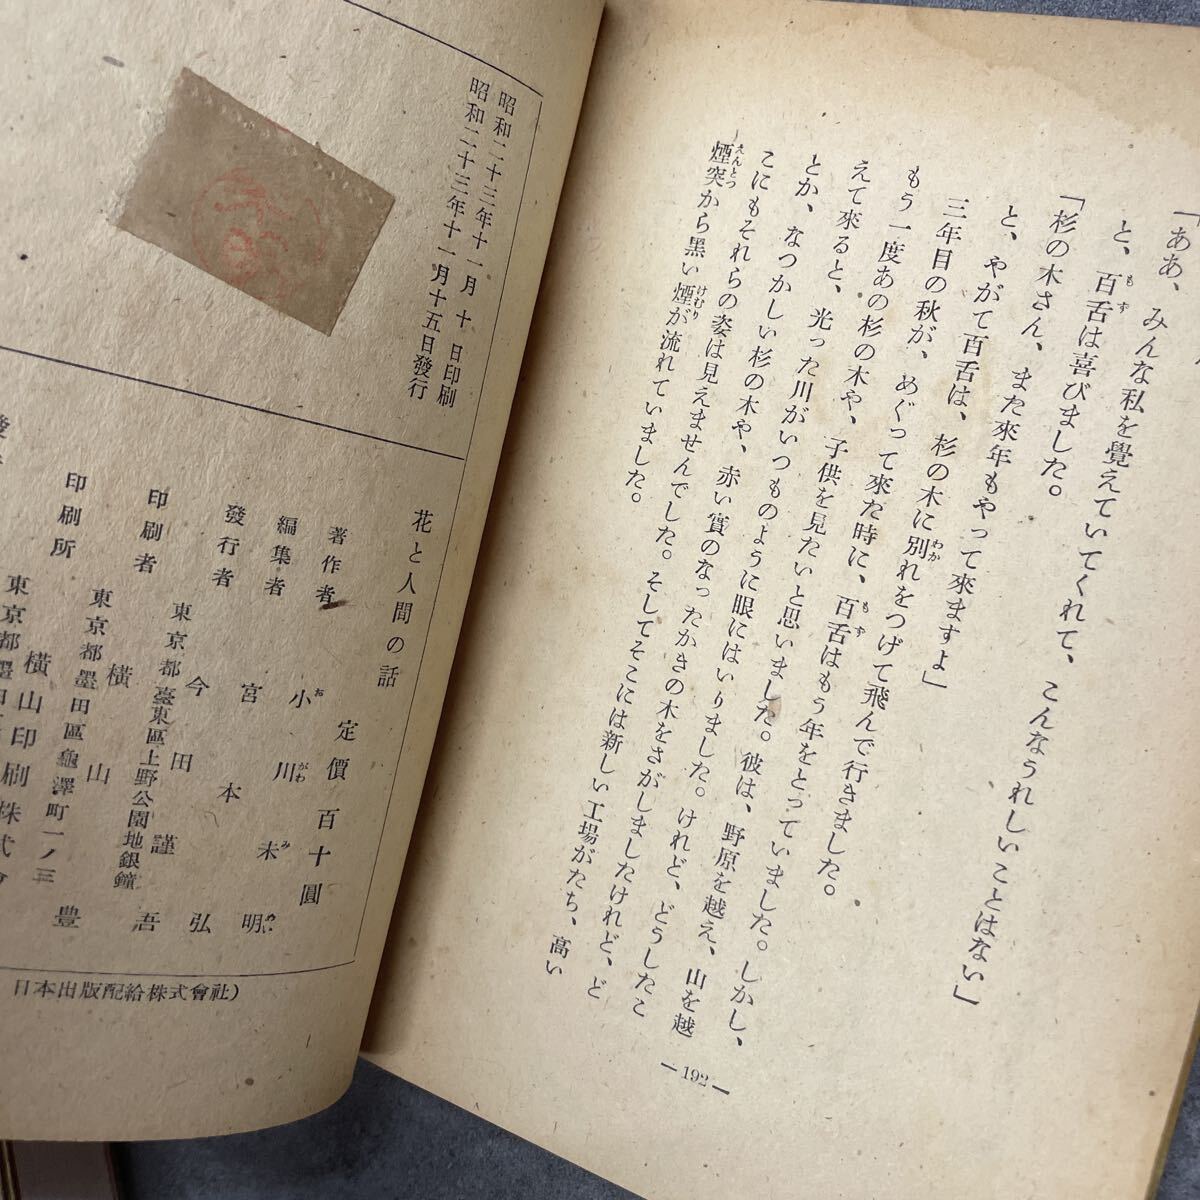 「ああ、みんな私を覺えていてくれて、こんなうれしいことはない」
と、百舌は喜びました。
「杉の木さん、また來年もやって來ますよ」
と、やがて百舌は、杉の木に別れをつげて飛んで行きました。
三年目の秋が、めぐって來た時に、百舌はもう年をとっていました。しかし、
もう一度あの杉の木や、子供を見たいと思いました。彼は、野原を越え、山を越
えて來ると、光った川がいつものように眼にはいりました。けれど、どうしたこ
とか、なつかしい杉の木や、赤い實のなったかきの木をさがしましたけれど、ど
こにもそれらの姿は見えませんでした。そしてそこには新しい工場がたち、高い
煙突から黑い煙が流れていました。
もず
わか
もず
けむり
えんとつ
—192—
昭和二十三年十一月十日印刷
昭和二十三年十一月十五日發行
花と人間の話
定價百十圓
著作者 小川未明
おがわみめい
編集者 宮本弘
發行者 今田謹吾
東京都臺東區上野公園地銀鐘
印刷者 橫山豊
東京都墨田區龜澤町一ノ三
印刷所 橫山印刷株式
日本出版配給株式會社）